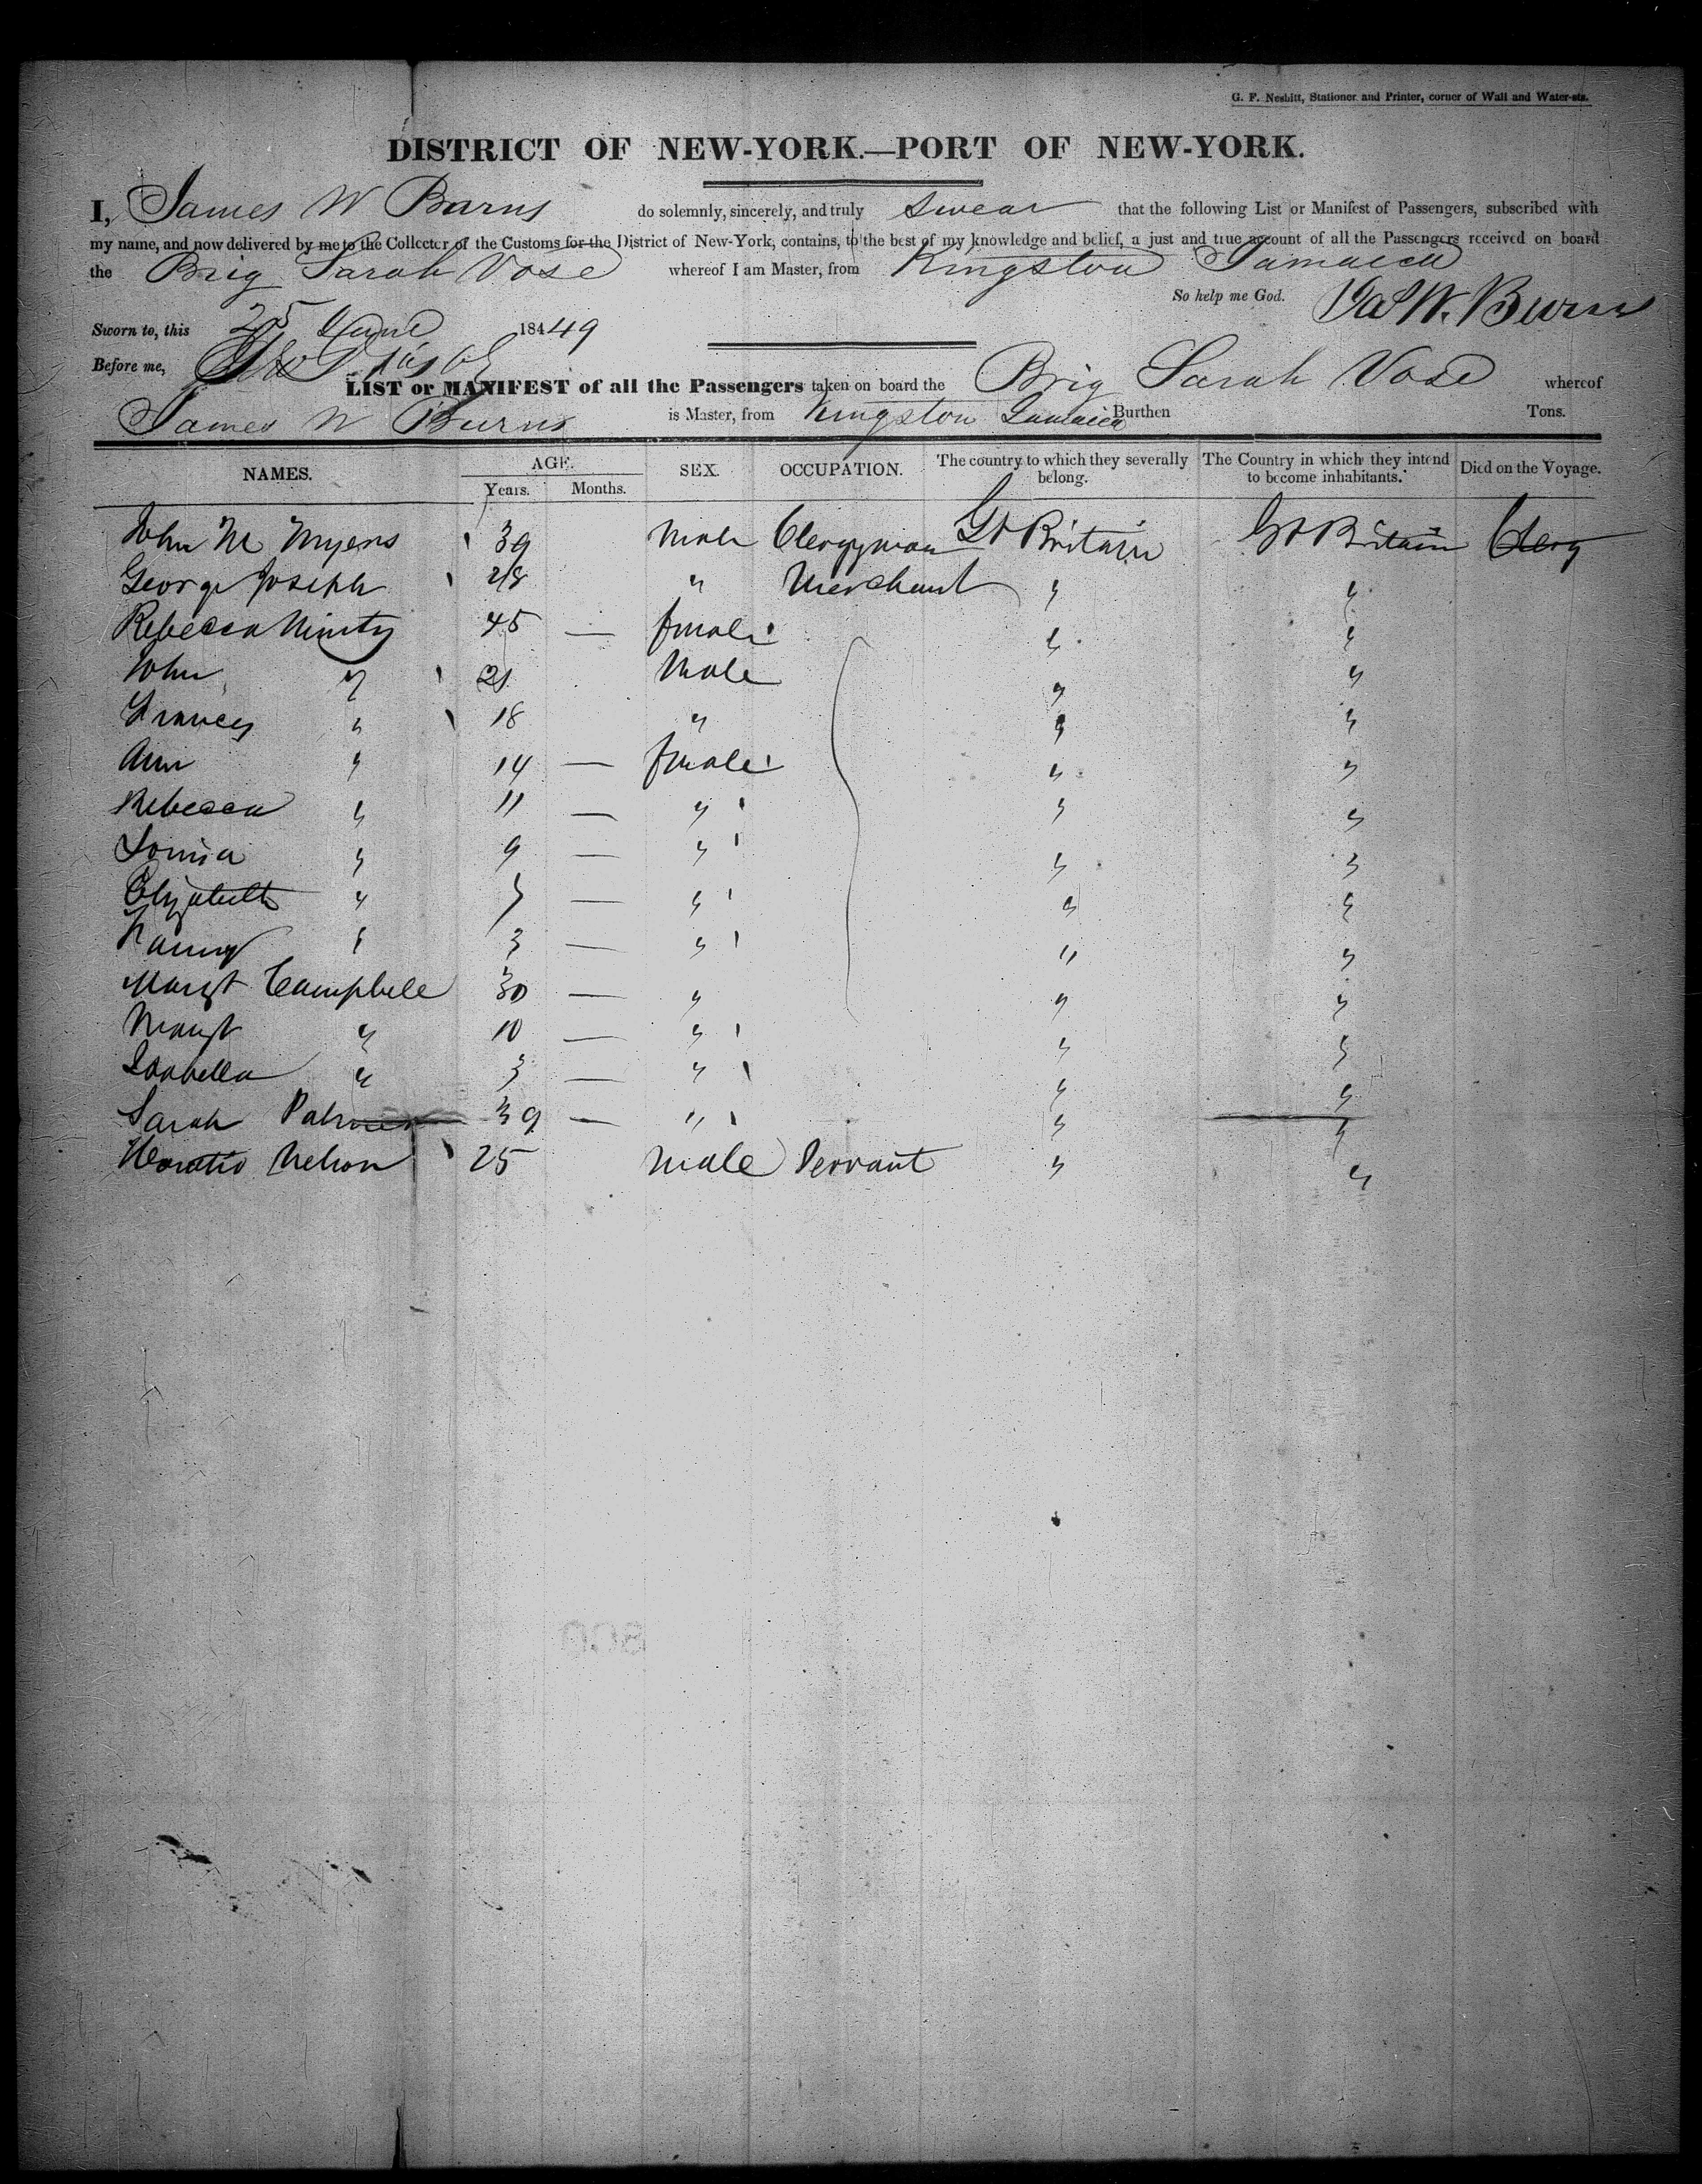 G. F. Nesbitt, Stationer and Printer, corner of Wall and Water-sts.
DISTRICT OF NEW-YORK.—PORT OF NEW-YORK.
I, James W Barns do solemnly, sincerely, and truly swear that the following List or Manifest of Passengers, subscribed with
my name, and now delivered by me to the Collector of the Customs for the District of New-York, contains, to the best of my knowledge and belief, a just and true account of all the Passengers received on board
the Brig Sarah Vose whereof I am Master, from Kingston Jamaica
So help me God. Jas W. Burns
Sworn to, this 25 June 18449
Before me,
LIST or MANIFEST of all the Passengers taken on board the Brig Sarah Vose whereof
James W Burns is Master, from Kingston Jamaica Burthen Tons.
NAMES. AGE. Years. Months. SEX. OCCUPATION. The country to which they severally belong. The Country in which they intend to become inhabitants. Died on the Voyage.
John M Myers 39 Male Clergyman Gt Britain Gt Britain Clerg
George Joseph 28 " Merchant " "
Rebecca 45 — female " "
John " 21 Male " "
Frances " 18 " " "
Ann " 14 — female " "
Rebecca " 11 — " " "
Louisa " 9 — " " "
Elizabeth " 7 — " " "
Fanny " 3 — " " "
Margt Campbell 30 — " " "
Margt " 10 — " " "
Isabella " 3 — " " "
Sarah Palmer 39 — " " "
Horatio Nelson 25 Male Servant " "